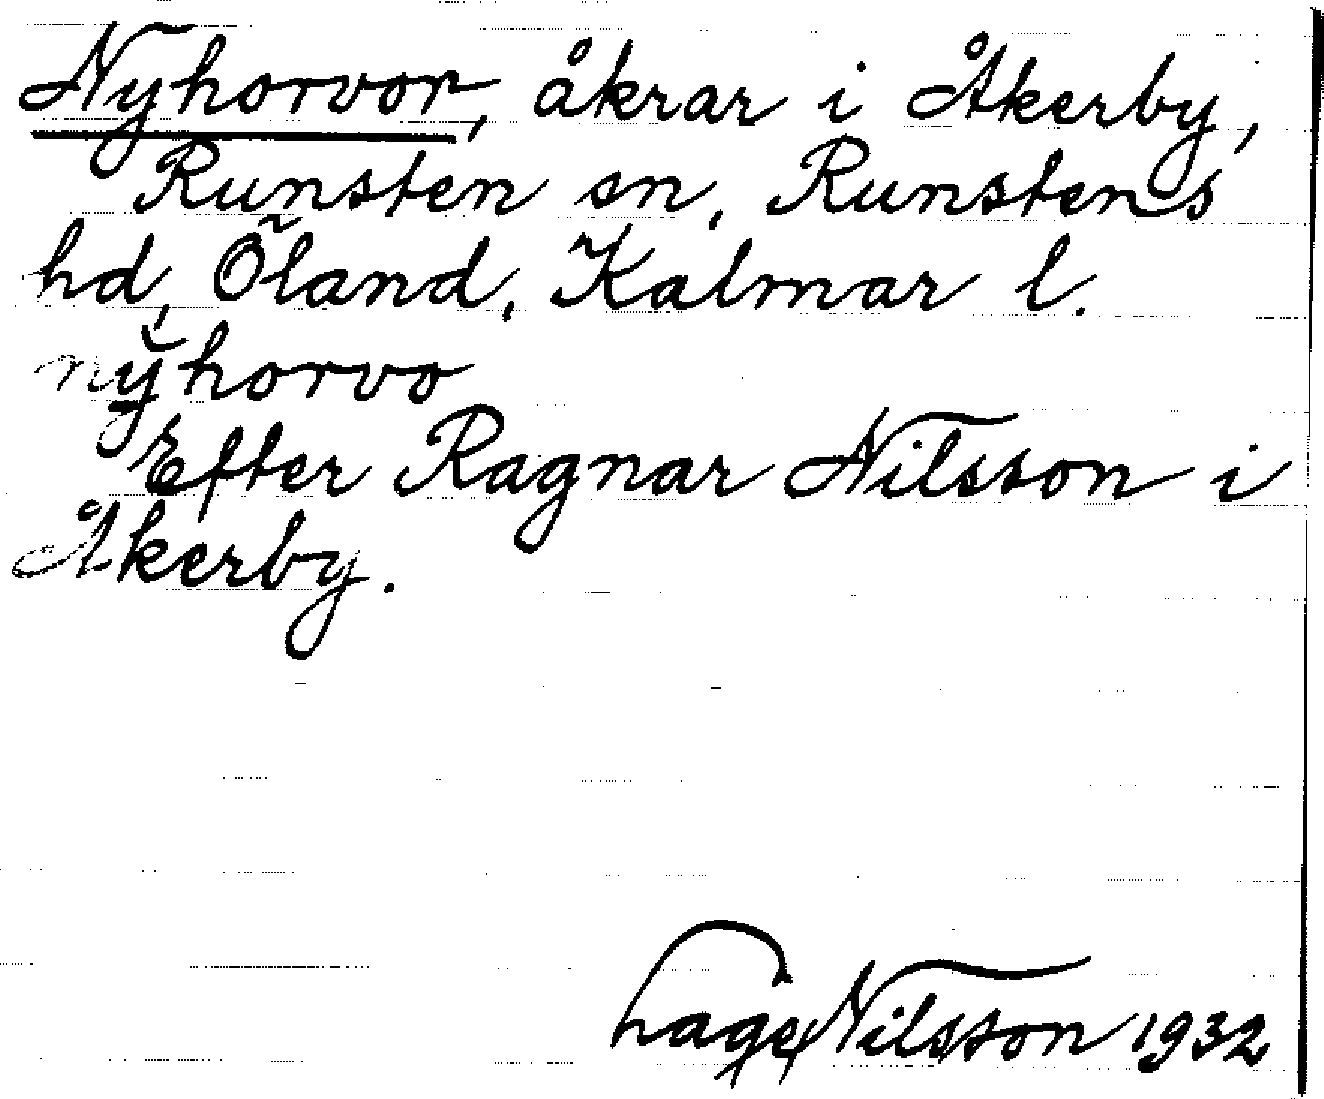 Nyhorvor, åkrar i Åkerby,
Runsten sn, Runstens
hd, Öland, Kalmar l.
nyhorvo
Efter Ragnar Nilsson i
Åkerby.
Lage Nilsson 1932